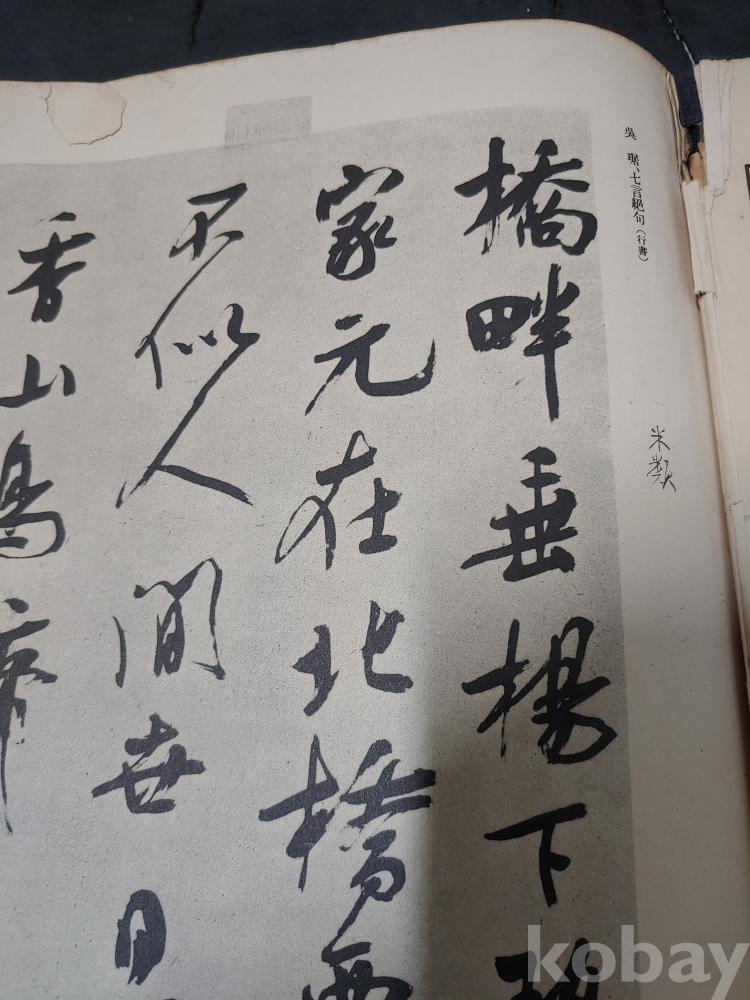 吳 琚、七言絶句(行書)
米類
橋畔垂楊下
家元在北橋西
不似人間世日
香山鳥啼
kobay